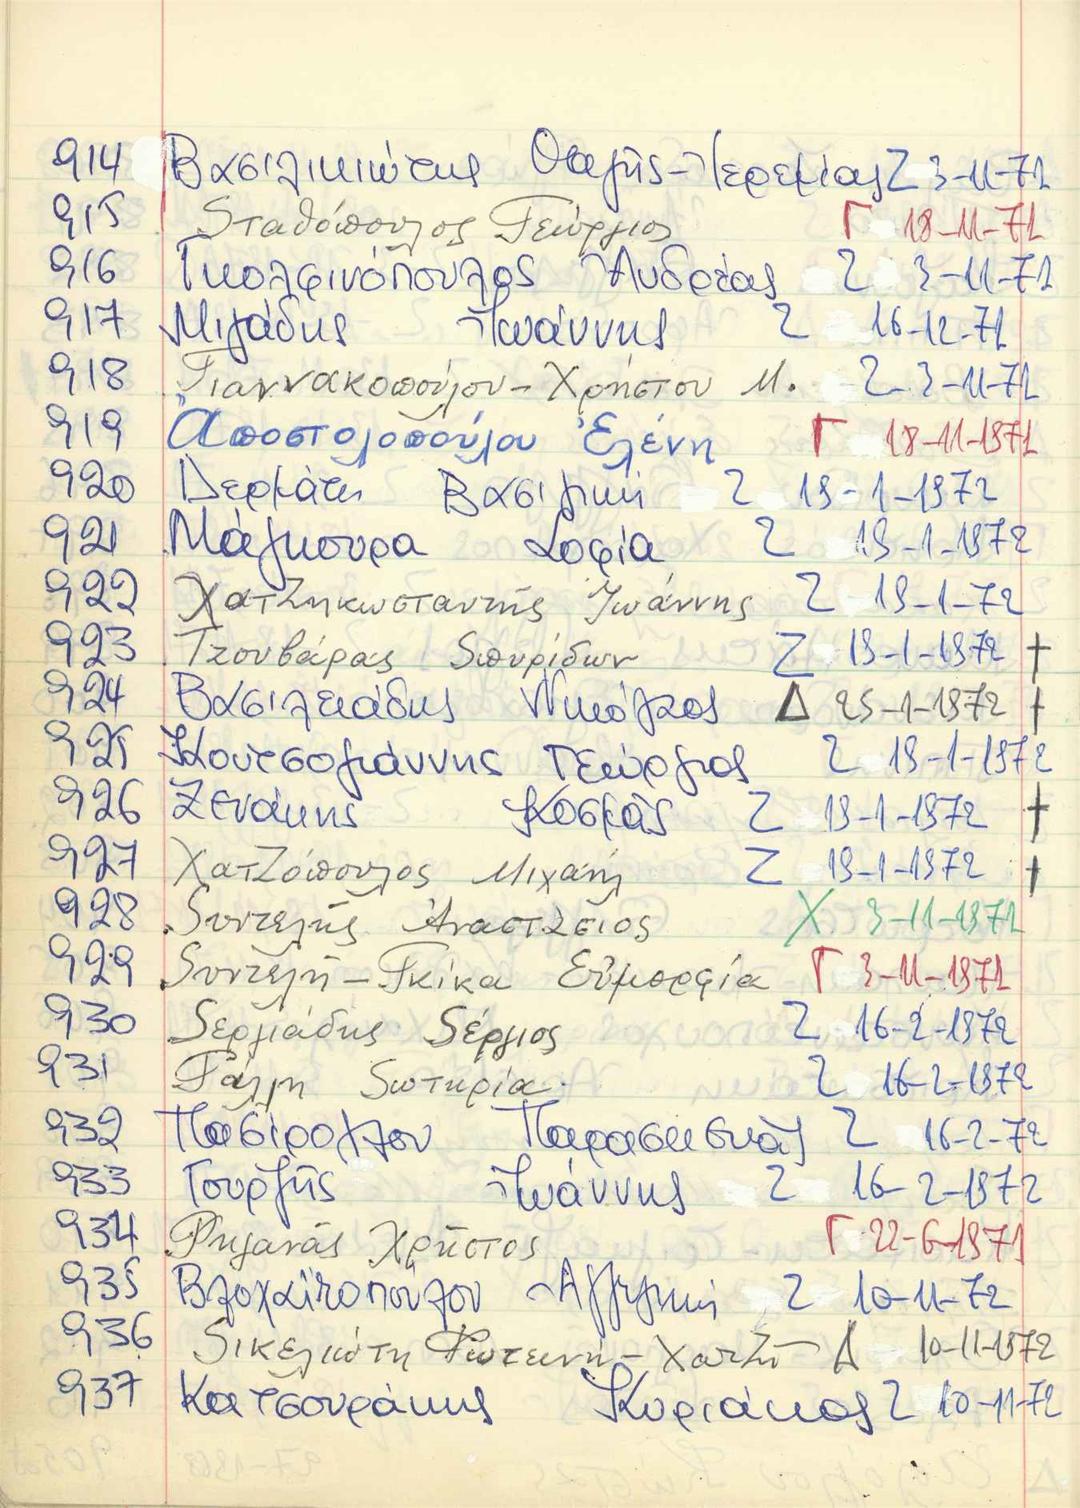 914 Βασιλικιώτης Θαλής-Ιερεμίας Ζ 3-11-71
915 Σταθόπουλος Γεώργιος Γ 18-11-71
916 Γκολφινόπουλος Ανδρέας Ζ 3-11-71
917 Μιλάδης Ιωάννης Ζ 16-12-71
918 Γιαννακοπούλου-Χρήστου Μ. Ζ 3-11-71
919 Ἀποστολοπούλου Ἑλένη Γ 18-11-1971
920 Δερμάτη Βασιλική Ζ 19-1-1972
921 Μάλκουρα Σοφία Ζ 19-1-1972
922 Χατζηκωσταντής Ἰωάννης Ζ 19-1-72
923 Τζουβάρας Σπυρίδων Ζ 19-1-1972 †
924 Βασιλειάδης Νικόλαος Δ 25-1-1972 †
925 Κουτσογιάννης Γεώργιος Ζ 19-1-1972
926 Ζενάκης Κοσμάς Ζ 19-1-1972 †
927 Χατζόπουλος Μιχαήλ Ζ 19-1-1972 †
928 Συντελής Ἀναστάσιος Χ. 3-11-1971
929 Συντελή-Γκίκα Εὐμορφία Γ 3-11-1971
930 Σεργιάδης Σέργιος Ζ 16-2-1972
931 Γάλλη Σωτηρία Ζ 16-2-1972
932 Πασίρογλου Παρασκευάς Ζ 16-2-72
933 Γουρζής Ιωάννης Ζ 16-2-1972
934 Ρηγανάς Χρῆστος Γ 22-6-1971
935 Βλοχαϊτοπούλου Αγγελική Ζ 10-11-72
936 Σικελιώτη Φωτεινή-Χατζῆ Δ 10-11-1972
937 Κατσουράκης Κυριάκος Ζ 10-11-72